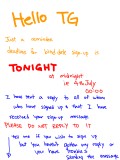 Hello TG
Just a reminder
deadline for sign-up is
TONIGHT
at midnight
ie 4th July
00:00
I have sent a reply to all of those
who have signed up & that I have
received your sign-up message
PLEASE DO NOT REPLY TO IT
tell me if you wish to sign up
but you haven't gotten any reply on
your
stating the message